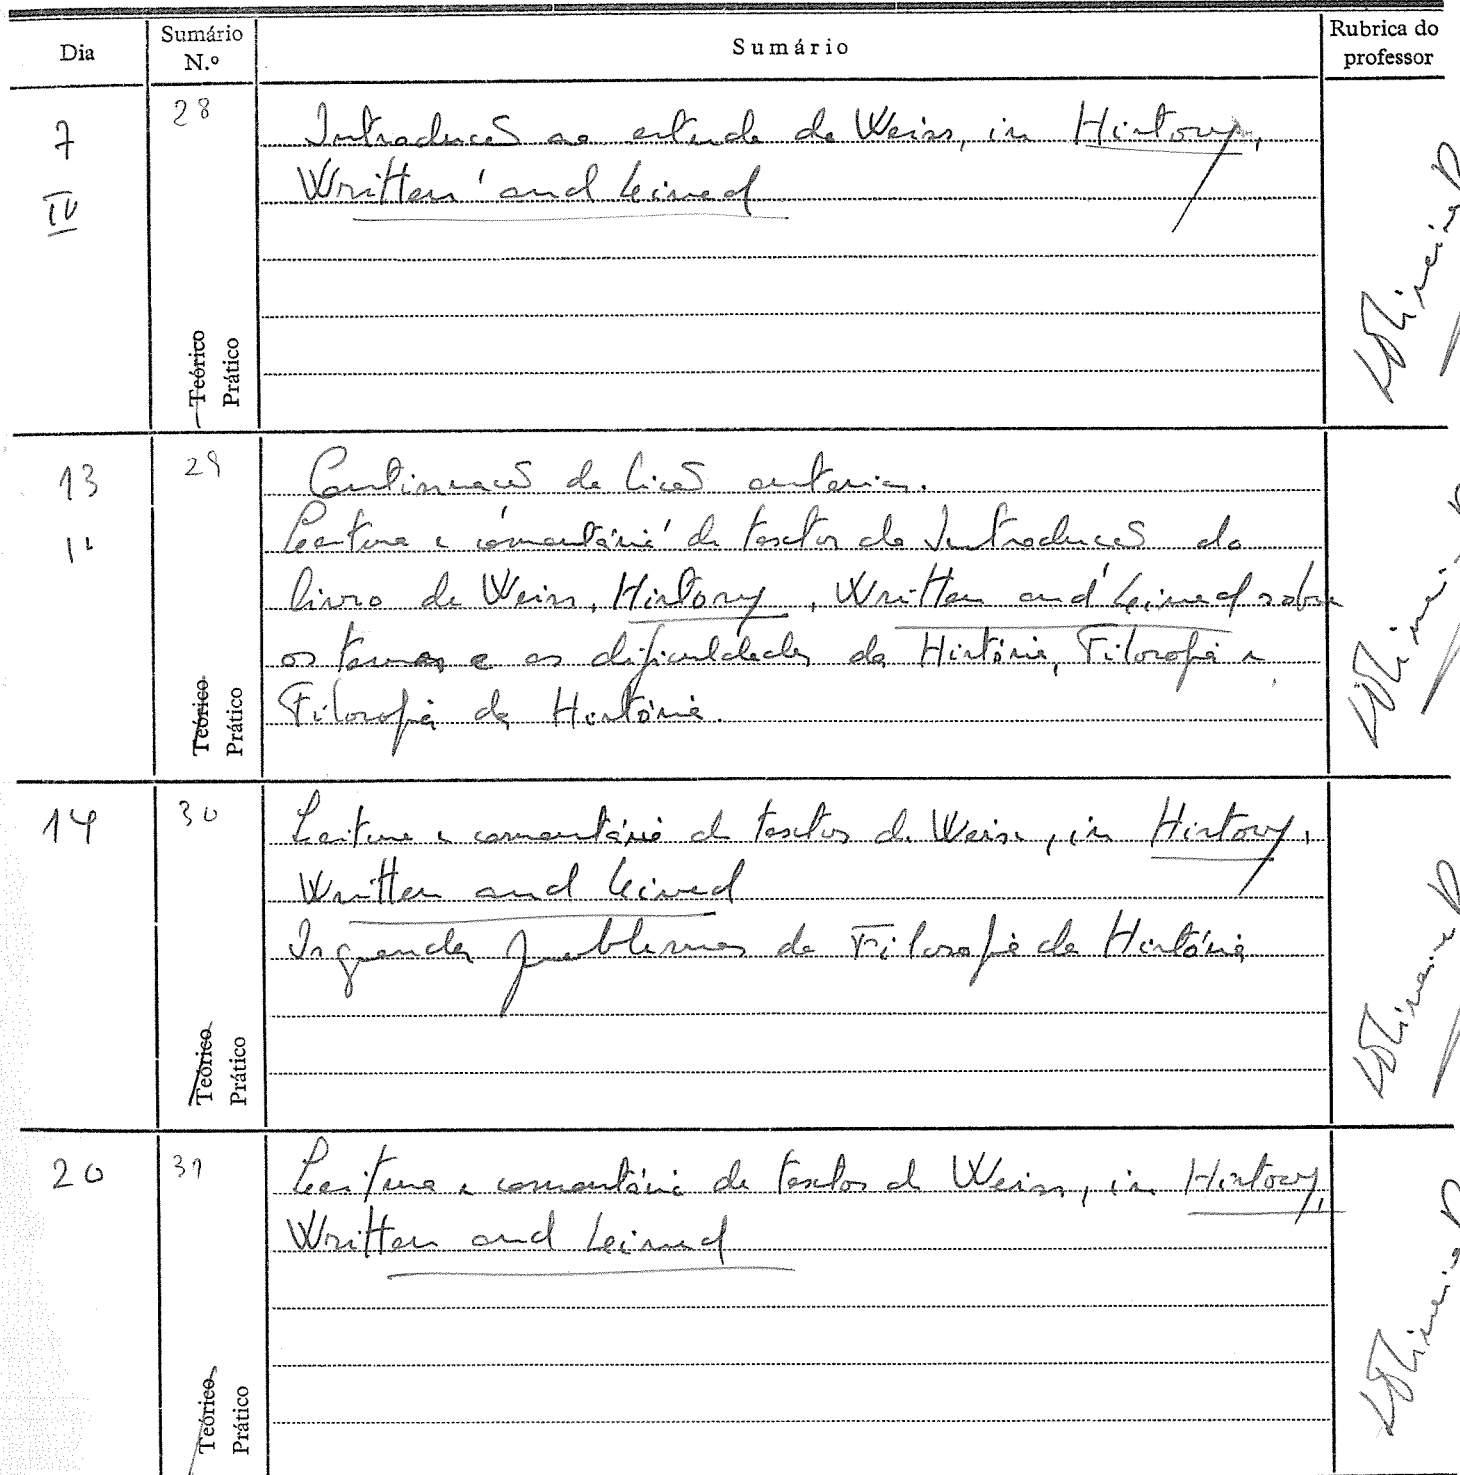 Dia
Sumário N.º
Sumário
Rubrica do professor
7
IV
28
Introdução ao estudo de Weiss, in History,
Written and Lived
Teórico
Prático
13
29
Continuação da lição anterior.
Leitura e comentário de textos da Introdução do
livro de Weiss, History, Written and Lived sobre
os temas e as dificuldades da História, Filosofia e
Filosofia da História.
Teórico
Prático
14
30
Leitura e comentário de textos de Weiss, in History,
Written and Lived
Os grandes problemas da Filosofia da História
Teórico
Prático
20
31
Leitura e comentário de textos de Weiss, in History,
Written and Lived
Teórico
Prático